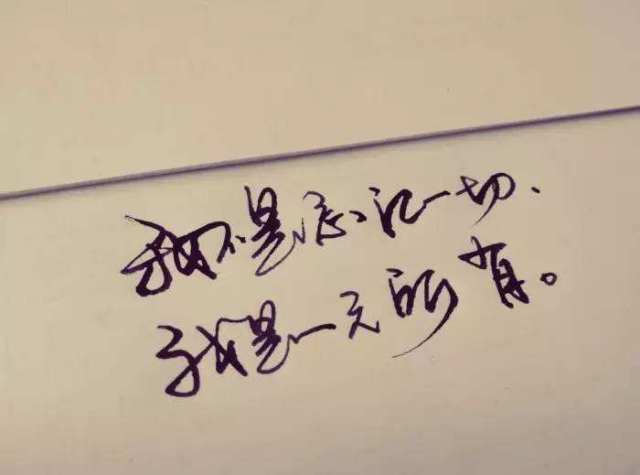 我不是忘记一切、
我是一无所有。